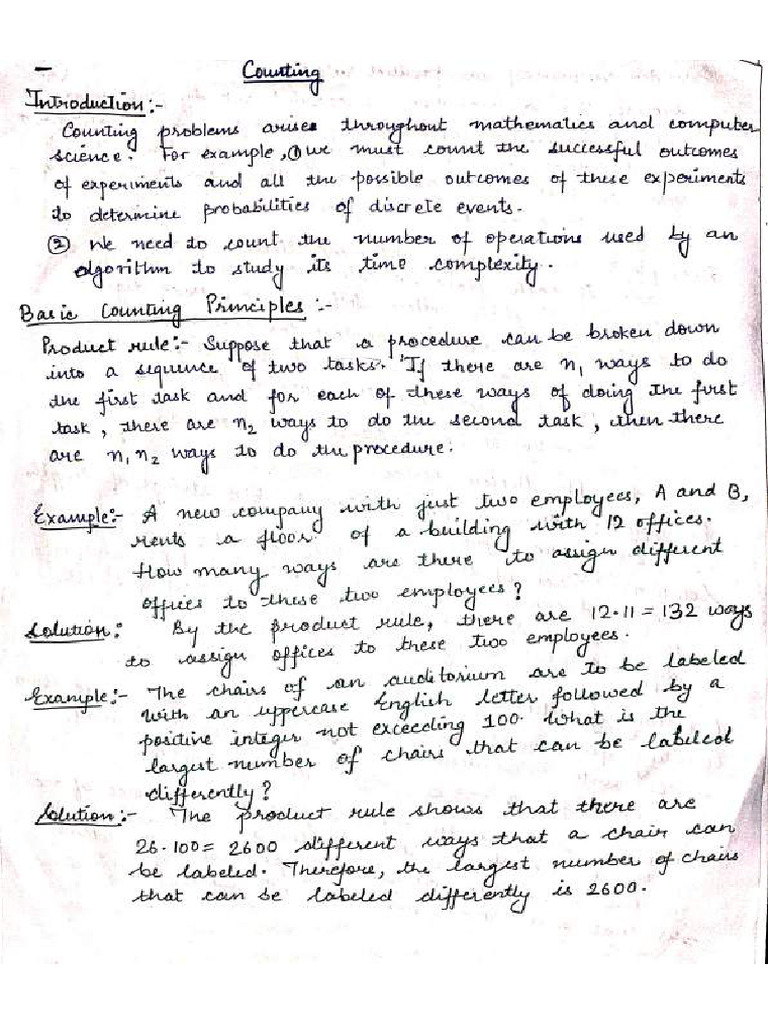 Counting
Introduction:-
Counting problems arises throughout mathematics and computer
science. For example, ① we must count the successful outcomes
of experiments and all the possible outcomes of these experiments
to determine probabilities of discrete events.
② We need to count the number of operations used by an
algorithm to study its time complexity.
Basic Counting Principles :-
Product rule:- Suppose that a procedure can be broken down
into a sequence of two tasks. If there are n₁ ways to do
the first task and for each of these ways of doing the first
task, there are n₂ ways to do the second task, then there
are n₁n₂ ways to do the procedure.
Example:- A new company with just two employees, A and B,
rents a floor of a building with 12 offices.
How many ways are there to assign different
offices to these two employees?
Solution:- By the product rule, there are 12·11 = 132 ways
to assign offices to these two employees.
Example:- The chairs of an auditorium are to be labeled
with an uppercase English letter followed by a
positive integer not exceeding 100. What is the
largest number of chairs that can be labeled
differently?
Solution:- The product rule shows that there are
26·100 = 2600 different ways that a chair can
be labeled. Therefore, the largest number of chairs
that can be labeled differently is 2600.